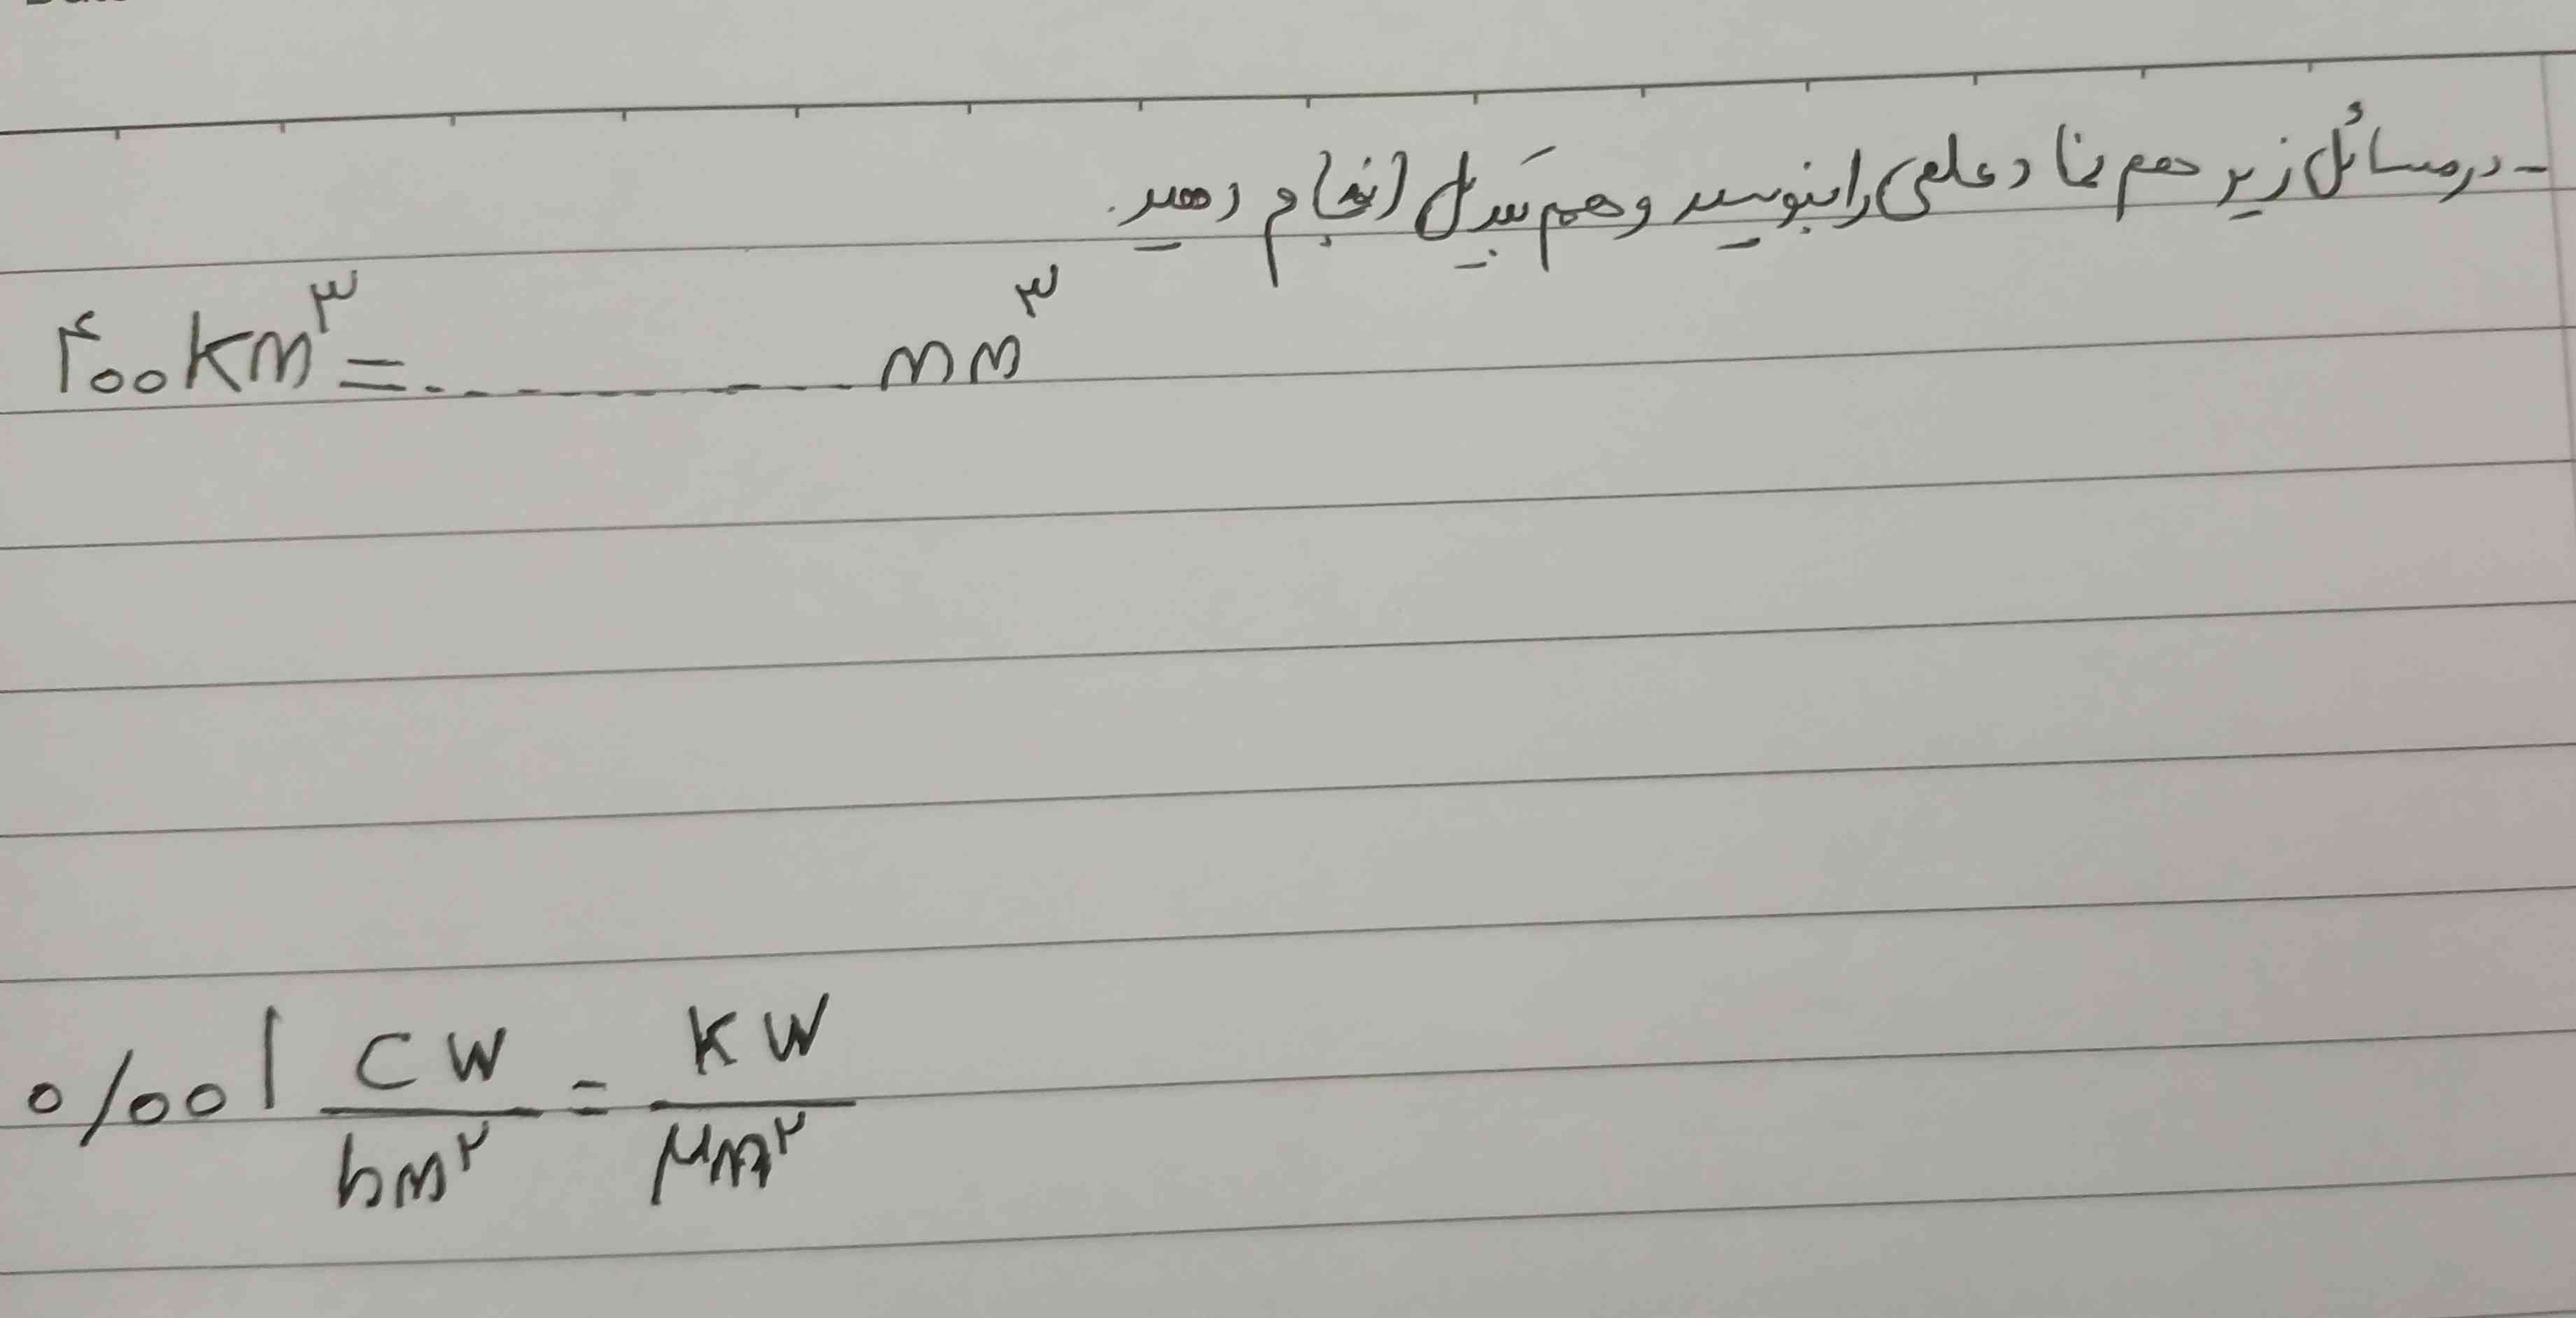 - در مسائل زیر هم نماد علمی را بنویسید و هم تبدیل انجام دهید.
۴۰۰ km^۳ = .......... mm^۳
۰/۰۰۱ cw/hm^۲ = kw/μm^۲